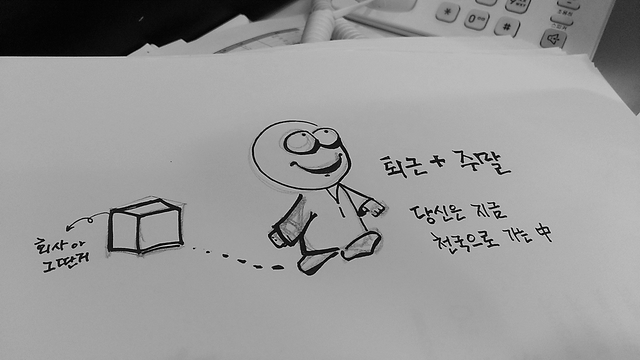 퇴근 + 주말
당신은 지금
천국으로 가는 中
회사 아
그딴거